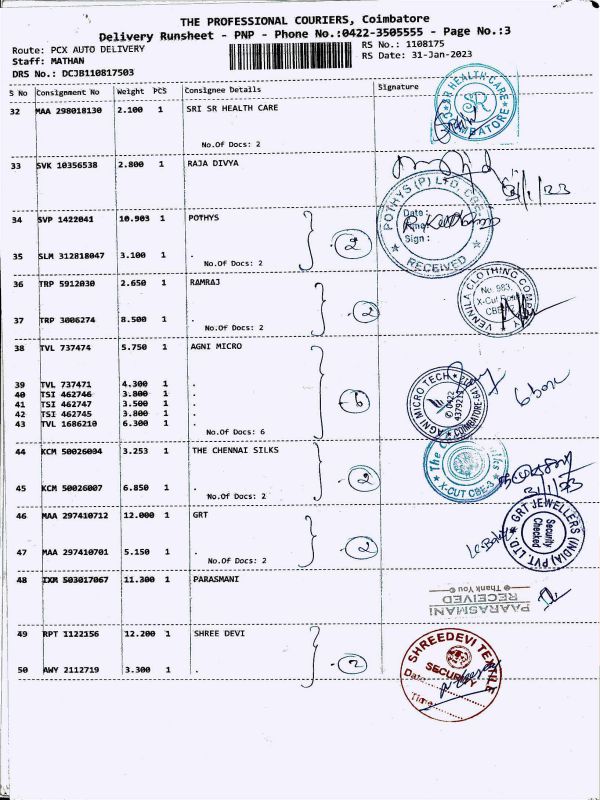 THE PROFESSIONAL COURIERS, Coimbatore
Delivery Runsheet - PNP - Phone No.:0422-3505555 - Page No.:3
Route: PCX AUTO DELIVERY
RS No.: 1108175
Staff: MATHAN
RS Date: 31-Jan-2023
DRS No.: DCJB110817503
S No Consignment No Weight PCS Consignee Details Signature
32 MAA 298018130 2.100 1 SRI SR HEALTH CARE
No.Of Docs: 2
SR HEALTH CARE
SR
33 SVK 10356538 2.800 1 RAJA DIVYA
31/1/23
34 SVP 1422041 10.903 1 POTHYS
2
POTHYS (P) LTD. CBE
Date :
Sign :
RECEIVED
35 SLM 312818047 3.100 1 .
No.Of Docs: 2
36 TRP 5912030 2.650 1 RAMRAJ
2
VENNILA CLOTHING COMPANY
No. 983,
X-Cut Road
37 TRP 3006274 8.500 1 .
No.Of Docs: 2
38 TVL 737474 5.750 1 AGNI MICRO
6
AGNI MICRO TECH
0422
COIMBATORE
39 TVL 737471 4.300 1 .
40 TSI 462746 3.800 1 .
41 TSI 462747 3.500 1 .
42 TSI 462745 3.800 1 .
43 TVL 1686210 6.300 1 .
No.Of Docs: 6
44 KCM 50026004 3.253 1 THE CHENNAI SILKS
2
X-CUT CBE-3
31/1/23
45 KCM 50026007 6.850 1 .
No.Of Docs: 2
46 MAA 297410712 12.000 1 GRT
2
GRT JEWELLERS (INDIA) PVT. LTD.
Security
Checked
47 MAA 297410701 5.150 1 .
No.Of Docs: 2
48 IXM 503017067 11.300 1 PARASMANI
PAARASMANI
RECEIVED
Thank You
49 RPT 1122156 12.200 1 SHREE DEVI
2
SHREEDEVI TEXTILE
SECURITY
Date
Time
50 AWY 2112719 3.300 1 .